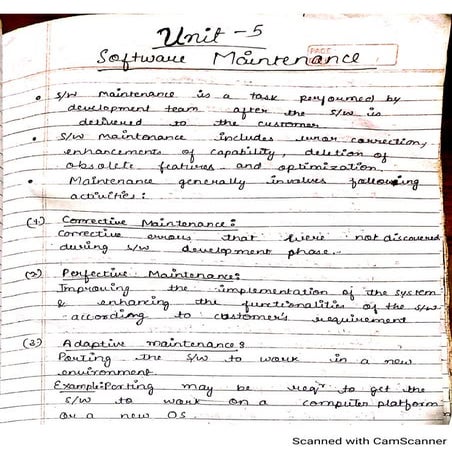 Unit - 5
Software Maintenance
PAGE
• S/W Maintenance is a task performed by
development team after the S/W is
delivered to the customer
• S/W Maintenance includes error correction,
enhancements of capability, deletion of
obsolete features and optimization.
• Maintenance generally involves following
activities:
(1) Corrective Maintenance:
Corrective errors that were not discovered
during S/W development phase.
(2) Perfective Maintenance:
Improving the implementation of the system
& enhancing the functionalities of the S/W
according to customer's requirement
(3) Adaptive maintenance:
Porting the S/W to work in a new
environment.
Example: Porting may be reqr to get the
S/W to work on a computer platform
or a new OS.
Scanned with CamScanner